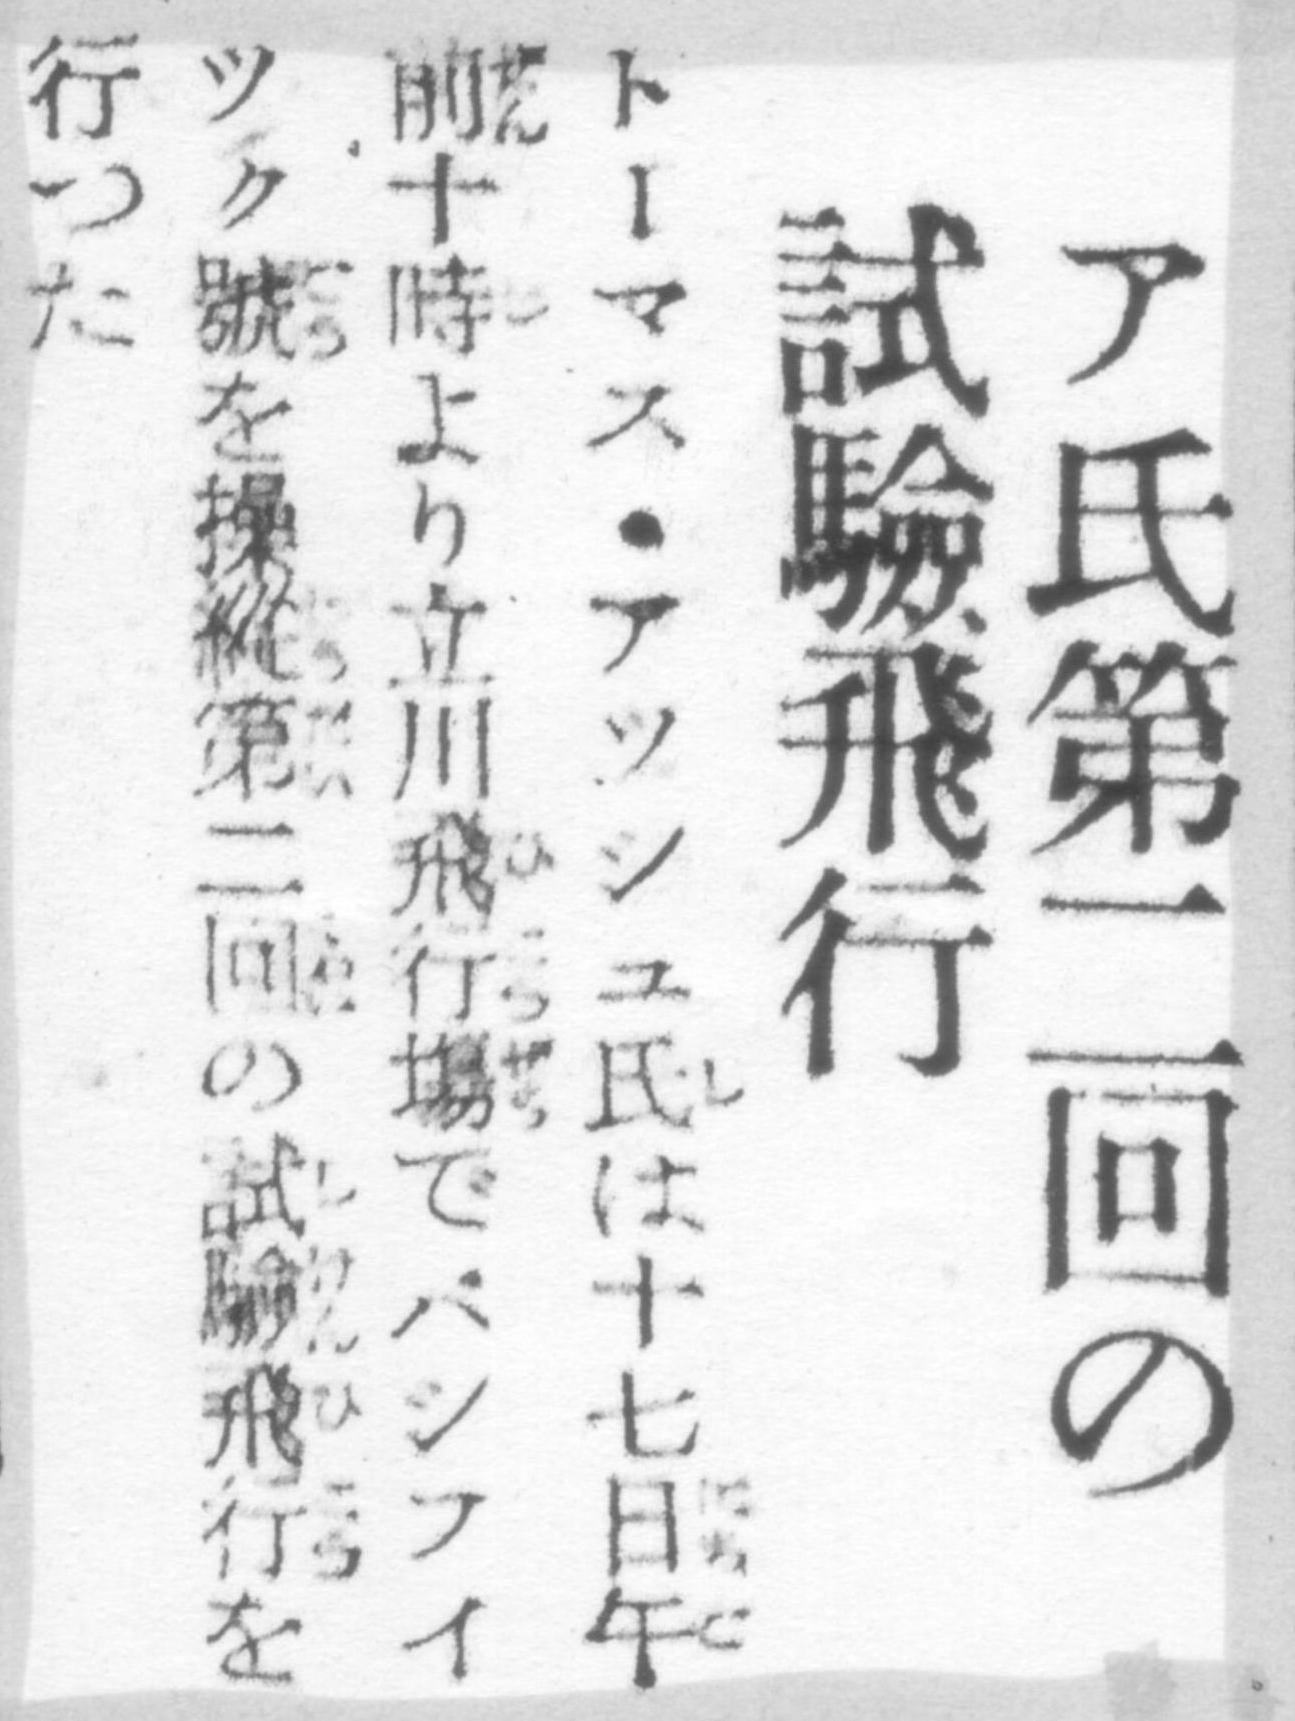 ア氏第二回の
試驗飛行
トーマス・アツシユ氏は十七日午
前十時より立川飛行場でパシフイ
ツク號を操縱第二回の試驗飛行を
行つた